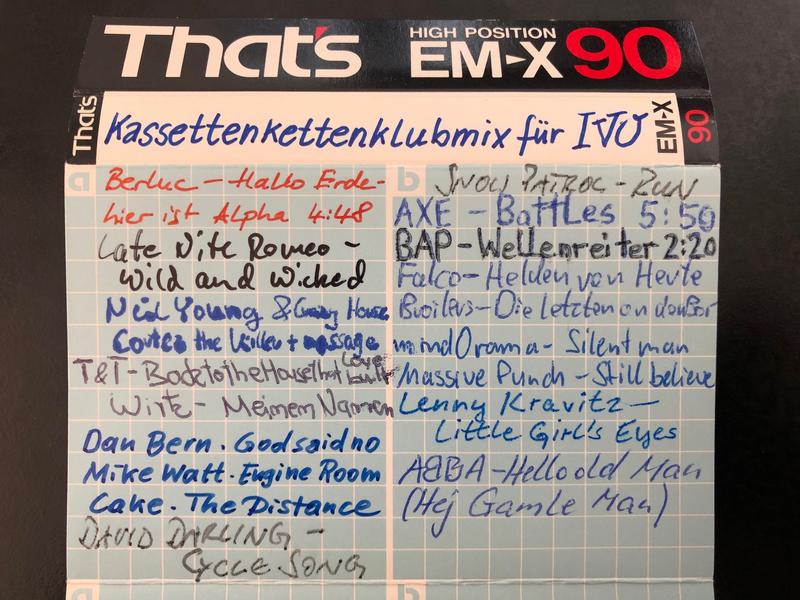 That's
HIGH POSITION
EM-X 90
That's
Kassettenkettenklubmix für IVO
EM-X
90
a
Berluc – Hallo Erde-
hier ist Alpha 4:48
Late Nite Romeo –
Wild and Wicked
Neil Young & Crazy Horse
Cortez the Killer + message
T&T - BacktotheHousethat Love built
Wirtz - Meinen Namen
Dan Bern · God said no
Mike Watt · Engine Room
Cake · The Distance
DAVID DARLING –
CYCLE SONG
a
b
SNOW PATROL - RUN
AXE – Battles 5:59
BAP - Wellenreiter 2:20
Falco – Helden von Heute
Broilers – Die Letzten an der Bar
mindOrama – Silent man
Massive Punch – Still believe
Lenny Kravitz –
Little Girl's Eyes
ABBA – Hello old Man
(Hej Gamle Man)
b